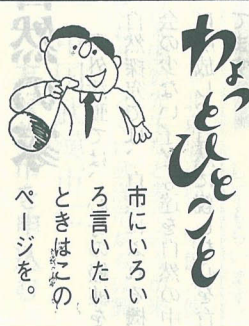 ちょっとひとこと
市にいろい
ろ言いたい
ときはこの
ページを。